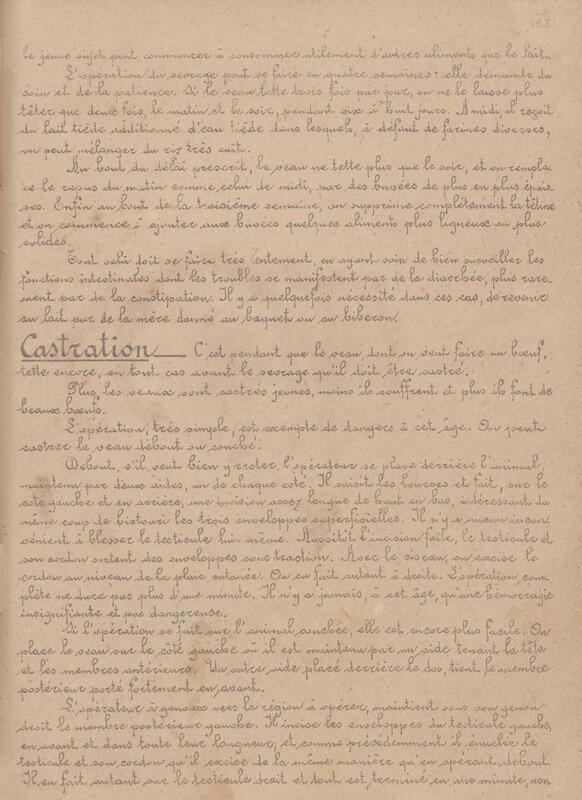 163
le jeune sujet peut commencer à consommer utilement d'autres aliments que le lait.
L'opération du sevrage peut se faire en quatre semaines: elle demande du
soin et de la patience. Si le veau tette trois fois par jour, on ne le laisse plus
têter que deux fois, le matin et le soir, pendant six à huit jours. A midi, il reçoit
du lait tiède additionné d'eau tiède dans lesquels, à défaut de farines diverses,
on peut mélanger du riz très cuit.
Au bout du délai prescrit, le veau ne tette plus que le soir, et on rempla-
ce le repas du matin comme celui de midi, par des buvées de plus en plus épais-
ses. Enfin au bout de la troisième semaine, on supprime complètement la tétine
et on commence à ajouter aux buvées quelques aliments plus ligneux ou plus
solides.
Tout celà doit se faire très lentement, en ayant soin de bien surveiller les
fonctions intestinales dont les troubles se manifestent par de la diarrhée, plus rare-
ment par de la constipation. Il y a quelquefois nécessité dans ces cas, de revenir
au lait pur de la mère donné au baquet ou au biberon.
Castration C'est pendant que le veau, dont on veut faire un bœuf,
tette encore, en tout cas avant le sevrage qu'il doit être castré.
Plus les veaux sont castrés jeunes, moins ils souffrent et plus ils font de
beaux bœufs.
L'opération, très simple, est exempte de dangers à cet âge. On peut
castrer le veau debout ou couché:
Debout, s'il veut bien y rester, l'opérateur se place derrière l'animal,
maintenu par deux aides, un de chaque coté. Il saisit les bourses et fait, sur le
coté gauche et en arrière, une incision assez longue de haut en bas, intéressant du
même coup de bistouri les trois enveloppes superficielles. Il n'y a aucun incon-
vénient à blesser le testicule lui-même. Aussitôt l'incision faite, le testicule et
son cordon sortent des enveloppes sans traction. Avec le ciseau, on excise le
cordon au niveau de la plaie cutanée. On en fait autant à droite. L'opération com-
plète ne dure pas plus d'une minute. Il n'y a jamais, à cet âge, qu'une hémorragie
insignifiante et pas dangereuse.
Si l'opération se fait sur l'animal couché, elle est encore plus facile. On
place le veau sur le coté gauche où il est maintenu par un aide tenant la tête
et les membres antérieurs. Un autre aide placé derrière le dos, tient le membre
postérieur porté fortement en avant.
L'opérateur à genoux vers la région à opérer, maintient sous son genou
droit le membre postérieur gauche. Il incise les enveloppes du testicule gauche,
en avant et dans toute leur longueur, et comme précédemment il énuclée le
testicule et son cordon qu'il excise de la même manière qu'en opérant debout.
Il en fait autant sur le testicule droit et tout est terminé en une minute, non